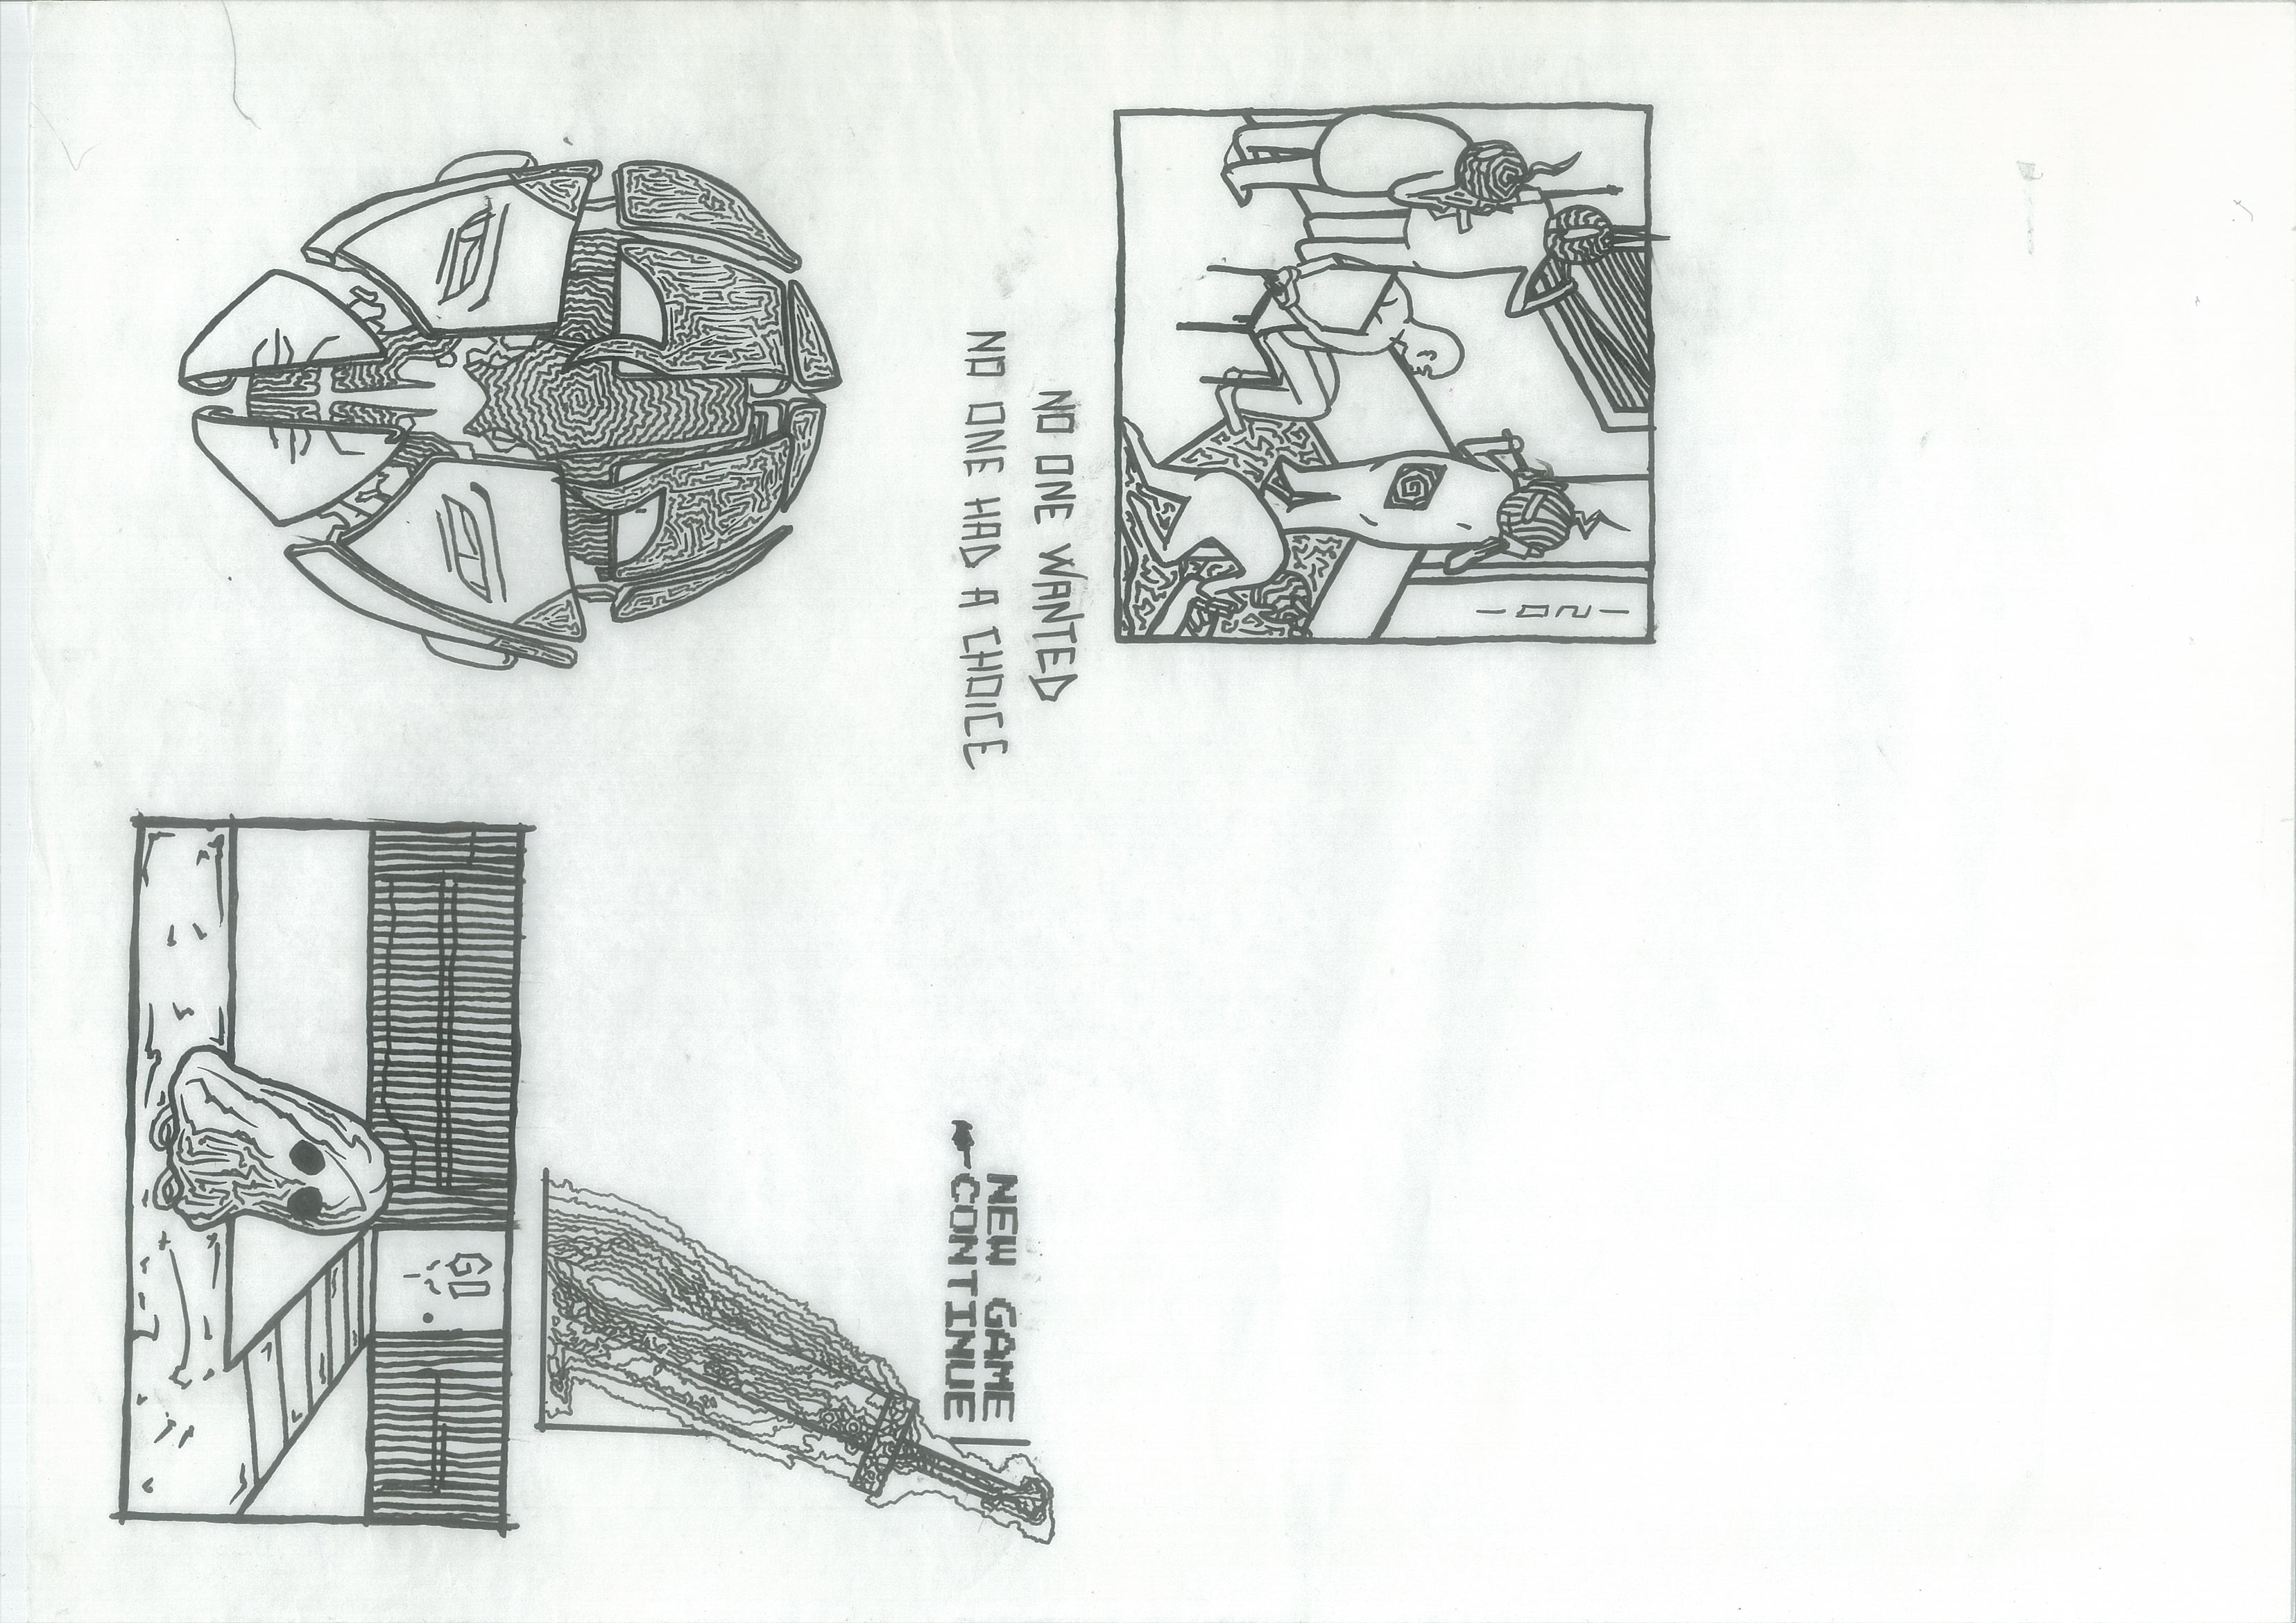 1201
NO ONE WANTED
NO ONE HAD A CHOICE
NEW GAME
CONTINUE
GO